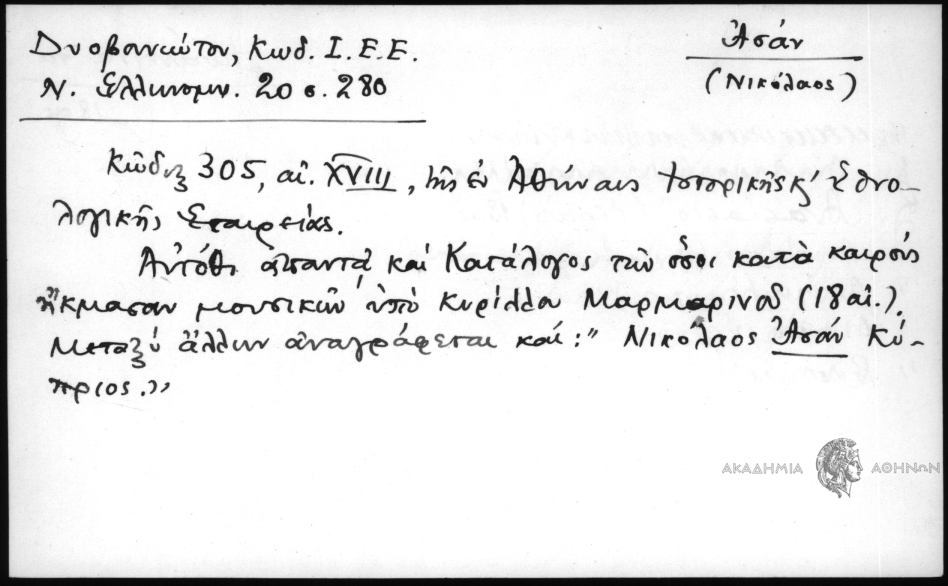 Δυοβουνιώτου, Κωδ. Ι. Ε. Ε.
Ν. Ἑλληνομν. 20 σ. 280
Ἀσάν
(Νικόλαος)
Κῶδιξ 305, αἰ. XVIII, τῆς ἐν Ἀθήναις Ἱστορικῆς κ' Ἐθνο-
λογικῆς Ἑταιρείας.
Αὐτόθι ἀπαντᾷ καὶ Κατάλογος τῶν ὅσοι κατὰ καιροὺς
ἤκμασαν μουσικῶν ὑπὸ Κυρίλλου Μαρμαρινοῦ (18 αἰ.).
Μεταξὺ ἄλλων ἀναγράφεται καί: "Νικόλαος Ἀσάν Κύ-
πριος."
ΑΚΑΔΗΜΙΑ ΑΘΗΝΩΝ